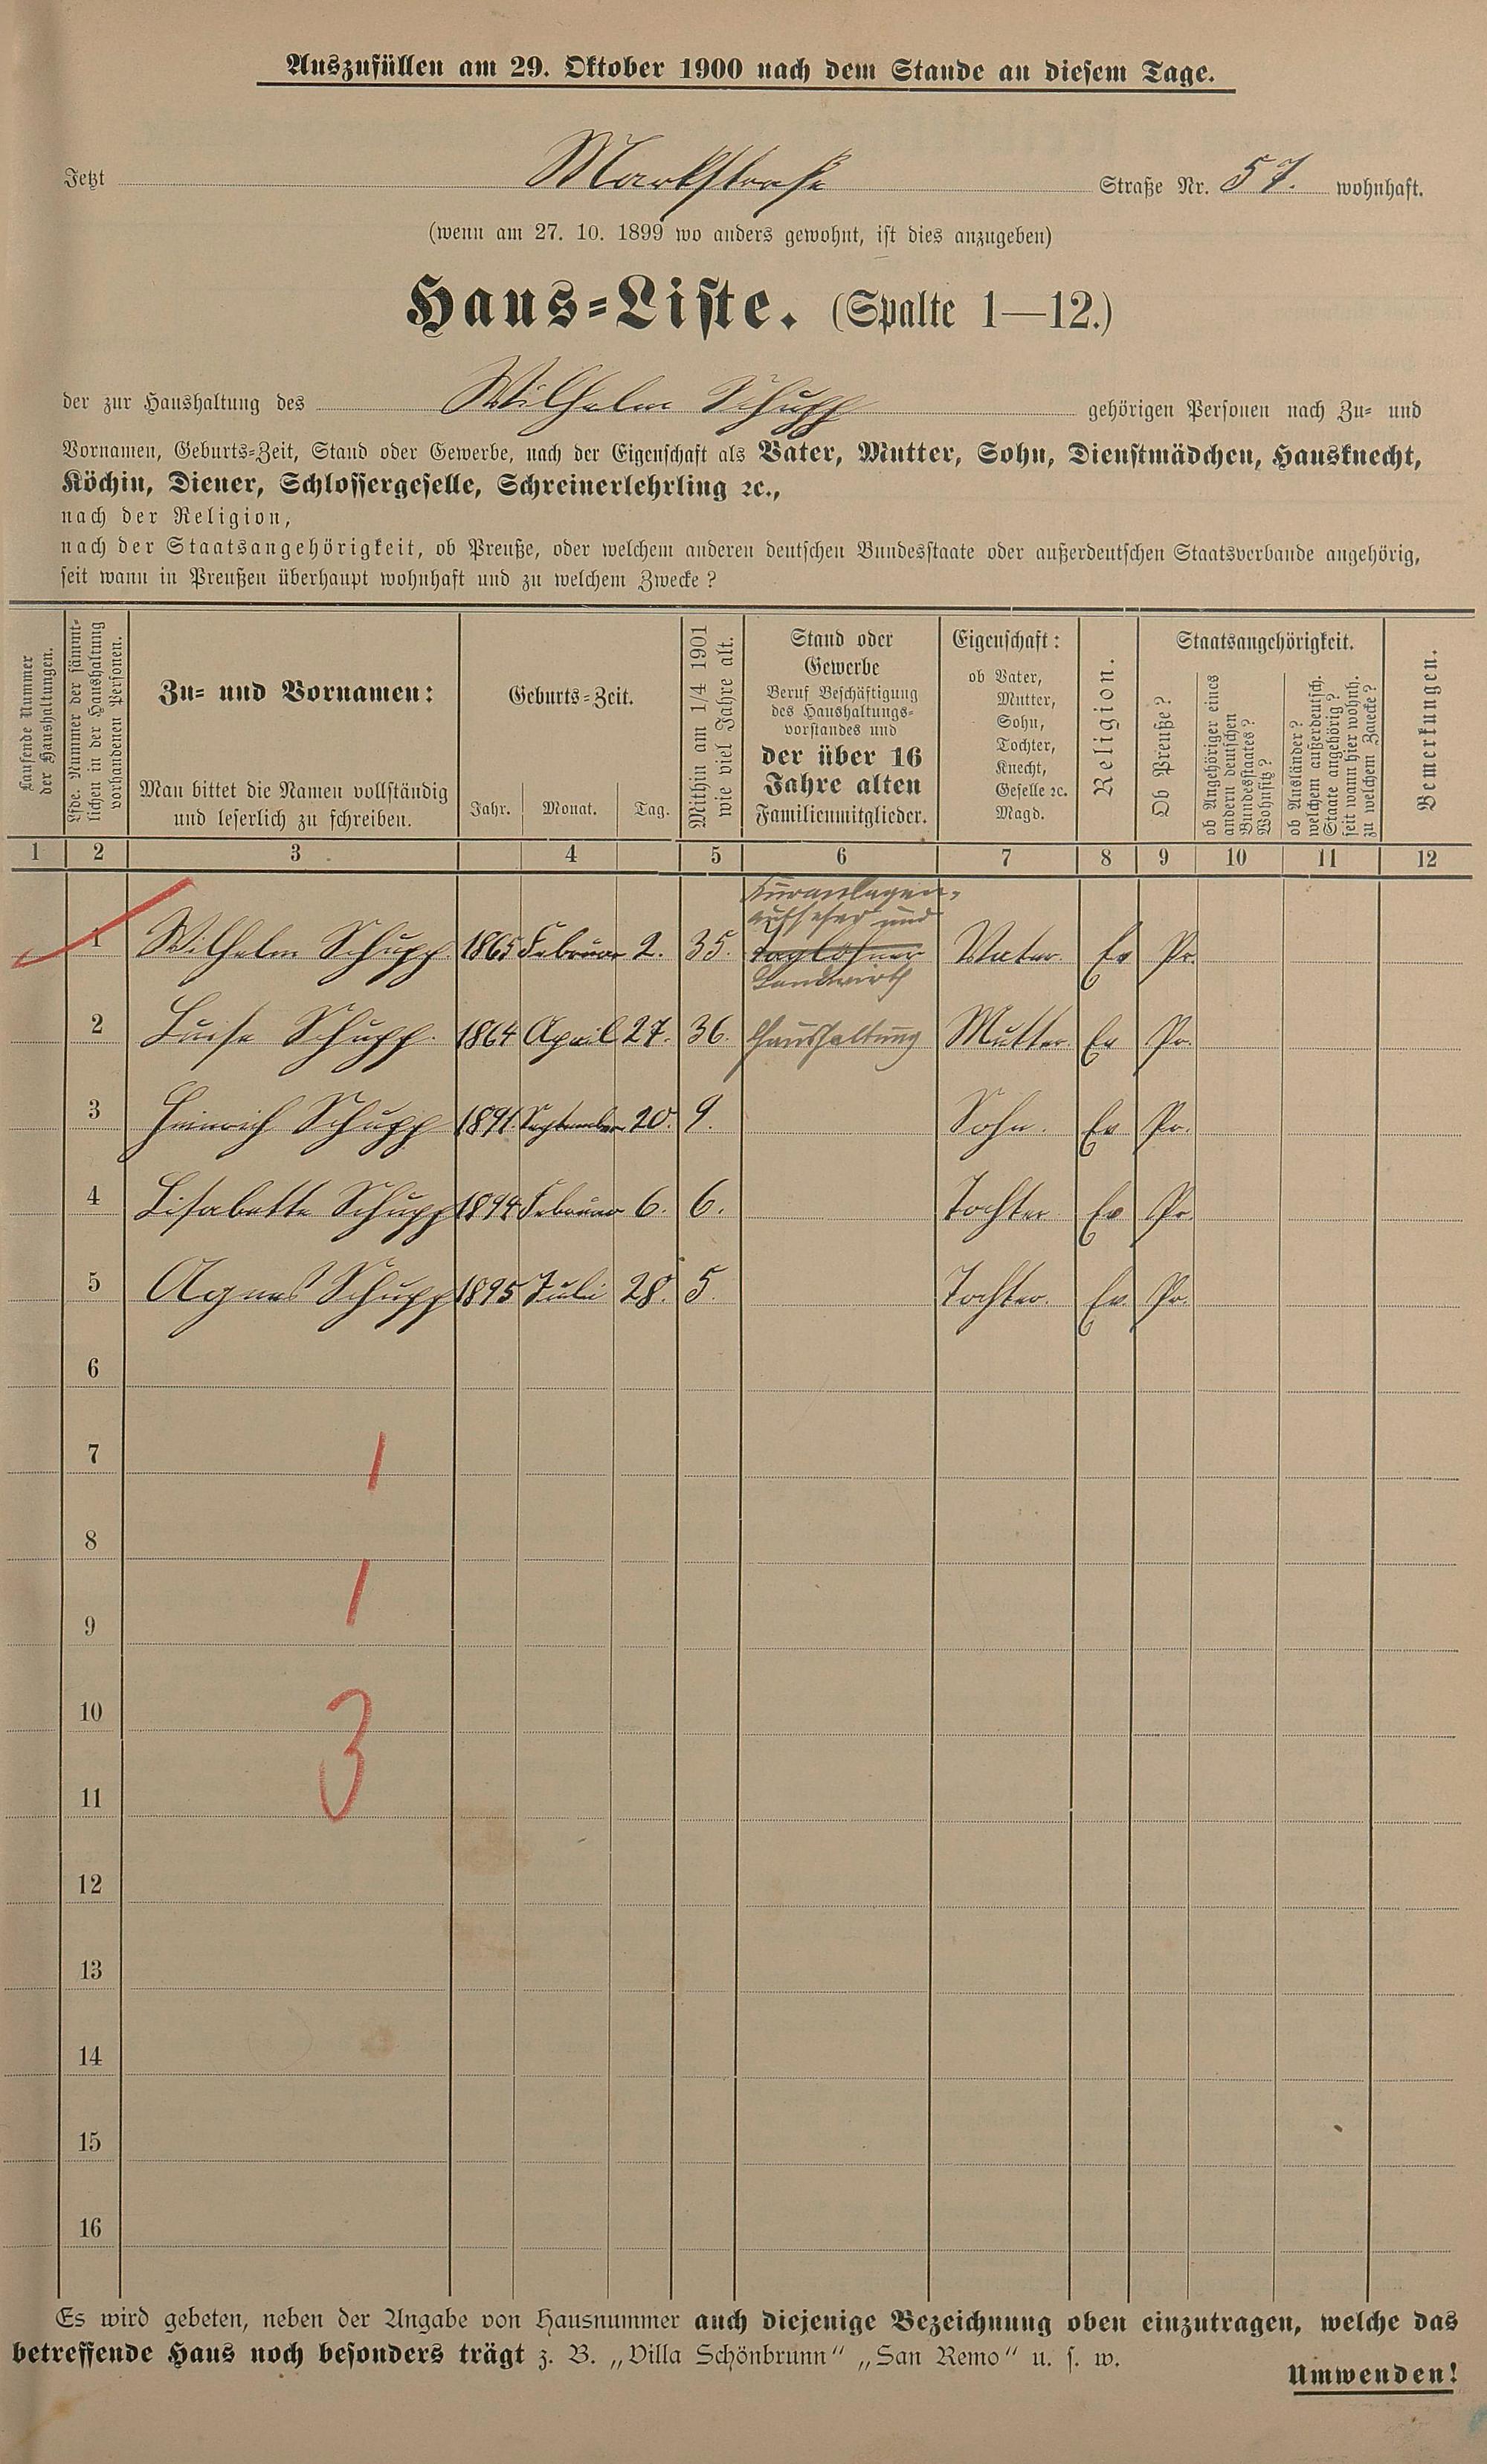 Auszufüllen am 29. Oktober 1900 nach dem Stande an diesem Tage.
Jetzt Markstraße Straße Nr. 57. wohnhaft.
(wenn am 27. 10. 1899 wo anders gewohnt, ist dies anzugeben)
Haus-Liste. (Spalte 1—12.)
der zur Haushaltung des Wilhelm Schupp gehörigen Personen nach Zu- und
Vornamen, Geburts-Zeit, Stand oder Gewerbe, nach der Eigenschaft als Vater, Mutter, Sohn, Dienstmädchen, Hausknecht,
Köchin, Diener, Schlossergeselle, Schreinerlehrling ꝛc.,
nach der Religion,
nach der Staatsangehörigkeit, ob Preuße, oder welchem anderen deutschen Bundesstaate oder außerdeutschen Staatsverbande angehörig,
seit wann in Preußen überhaupt wohnhaft und zu welchem Zwecke?
Laufende Nummer
der Haushaltungen.
Lfde. Nummer der sämmt-
lichen in der Haushaltung
vorhandenen Personen.
Zu- und Vornamen:
Man bittet die Namen vollständig
und leserlich zu schreiben.
Geburts-Zeit.
Jahr. Monat. Tag.
Mithin am 1/4 1901
wie viel Jahre alt.
Stand oder
Gewerbe
Beruf Beschäftigung
des Haushaltungs-
vorstandes und
der über 16
Jahre alten
Familienmitglieder.
Eigenschaft:
ob Vater,
Mutter,
Sohn,
Tochter,
Knecht,
Geselle ꝛc.
Magd.
Religion.
Staatsangehörigkeit.
Ob Preuße?
ob Angehöriger eines
andern deutschen
Bundesstaates?
Wohnsitz?
ob Ausländer?
welchem außerdeutsch.
Staate angehörig?
seit wann hier wohnh.
zu welchem Zwecke?
Bemerkungen.
1 2 3 4 5 6 7 8 9 10 11 12
Kuranlagen-
aufseher und
1 Wilhelm Schupp. 1865 Februar 2. 35. Taglöhner Vater. Ev Pr.
Landwirth
2 Luise Schupp. 1864 April 27. 36. Haushaltung Mutter. Ev Pr.
3 Heinrich Schupp 1891. September 20. 9. Sohn. Ev Pr.
4 Lisabette Schupp 1894 Februar 6. 6. Tochter Ev Pr.
5 Agnes Schupp 1895 Juli 28. 5. Tochter. Ev. Pr.
6
7
1
8
1
9
10
3
11
12
13
14
15
16
Es wird gebeten, neben der Angabe von Hausnummer auch diejenige Bezeichnung oben einzutragen, welche das
betreffende Haus noch besonders trägt z. B. „Villa Schönbrunn“ „San Remo“ u. s. w.
Umwenden!